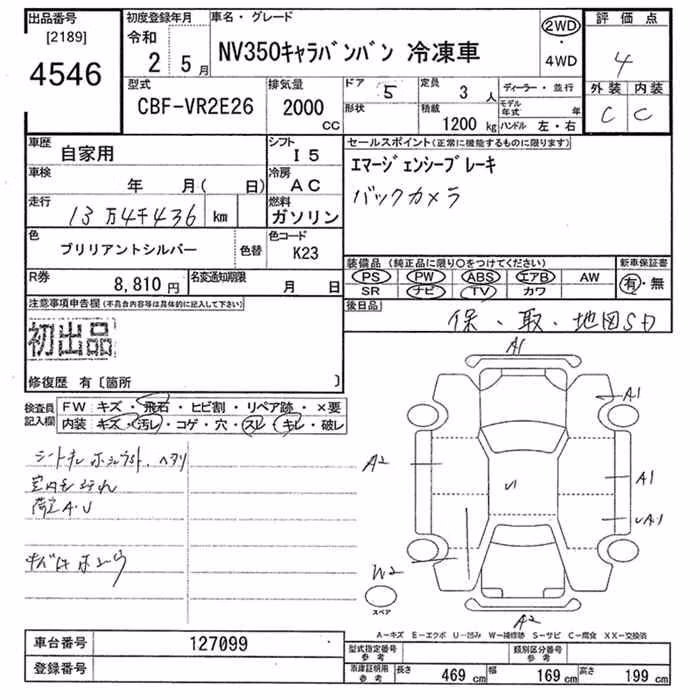 出品番号
[2189]
4546
初度登録年月
令和
2 5月
車名・グレード
NV350キャラバンバン 冷凍車
2WD
・
4WD
評価点
4
外装 内装
C C
型式
CBF-VR2E26
排気量
2000
CC
ドア 5
形状
定員 3 人
積載 1200 kg
ディーラー・並行
モデル年式 年
ハンドル 左・右
車歴
自家用
シフト
I5
車検
年 月( 日)
冷房
AC
走行
13万4千436 km
燃料
ガソリン
色
ブリリアントシルバー
色替
色コード
K23
R券
8,810円
名変通知期限
月 日
セールスポイント(正常に機能するものに限ります)
エマージェンシーブレーキ
バックカメラ
装備品 (純正品に限り○をつけてください)
新車保証書
PS PW ABS エアB AW
SR ナビ TV カワ
有・無
後日品
保・取・地図SD
注意事項申告欄(不具合内容等は具体的に記入して下さい)
初出品
修復歴 有〔箇所 〕
検査員
記入欄
FW キズ・飛石・ヒビ割・リペア跡・×要
内装 キズ・汚レ・コゲ・穴・スレ・キレ・破レ
A1
A1
A2
A1
U1
UA1
W2
A2
スペア
A-キズ E-エクボ U-凹み W-補修跡 S-サビ C-腐食 XX-交換済
車台番号
127099
登録番号
型式指定番号
参考
類別区分番号
参考
車庫証明用
参考
長さ 469 cm 幅 169 cm 高さ 199 cm